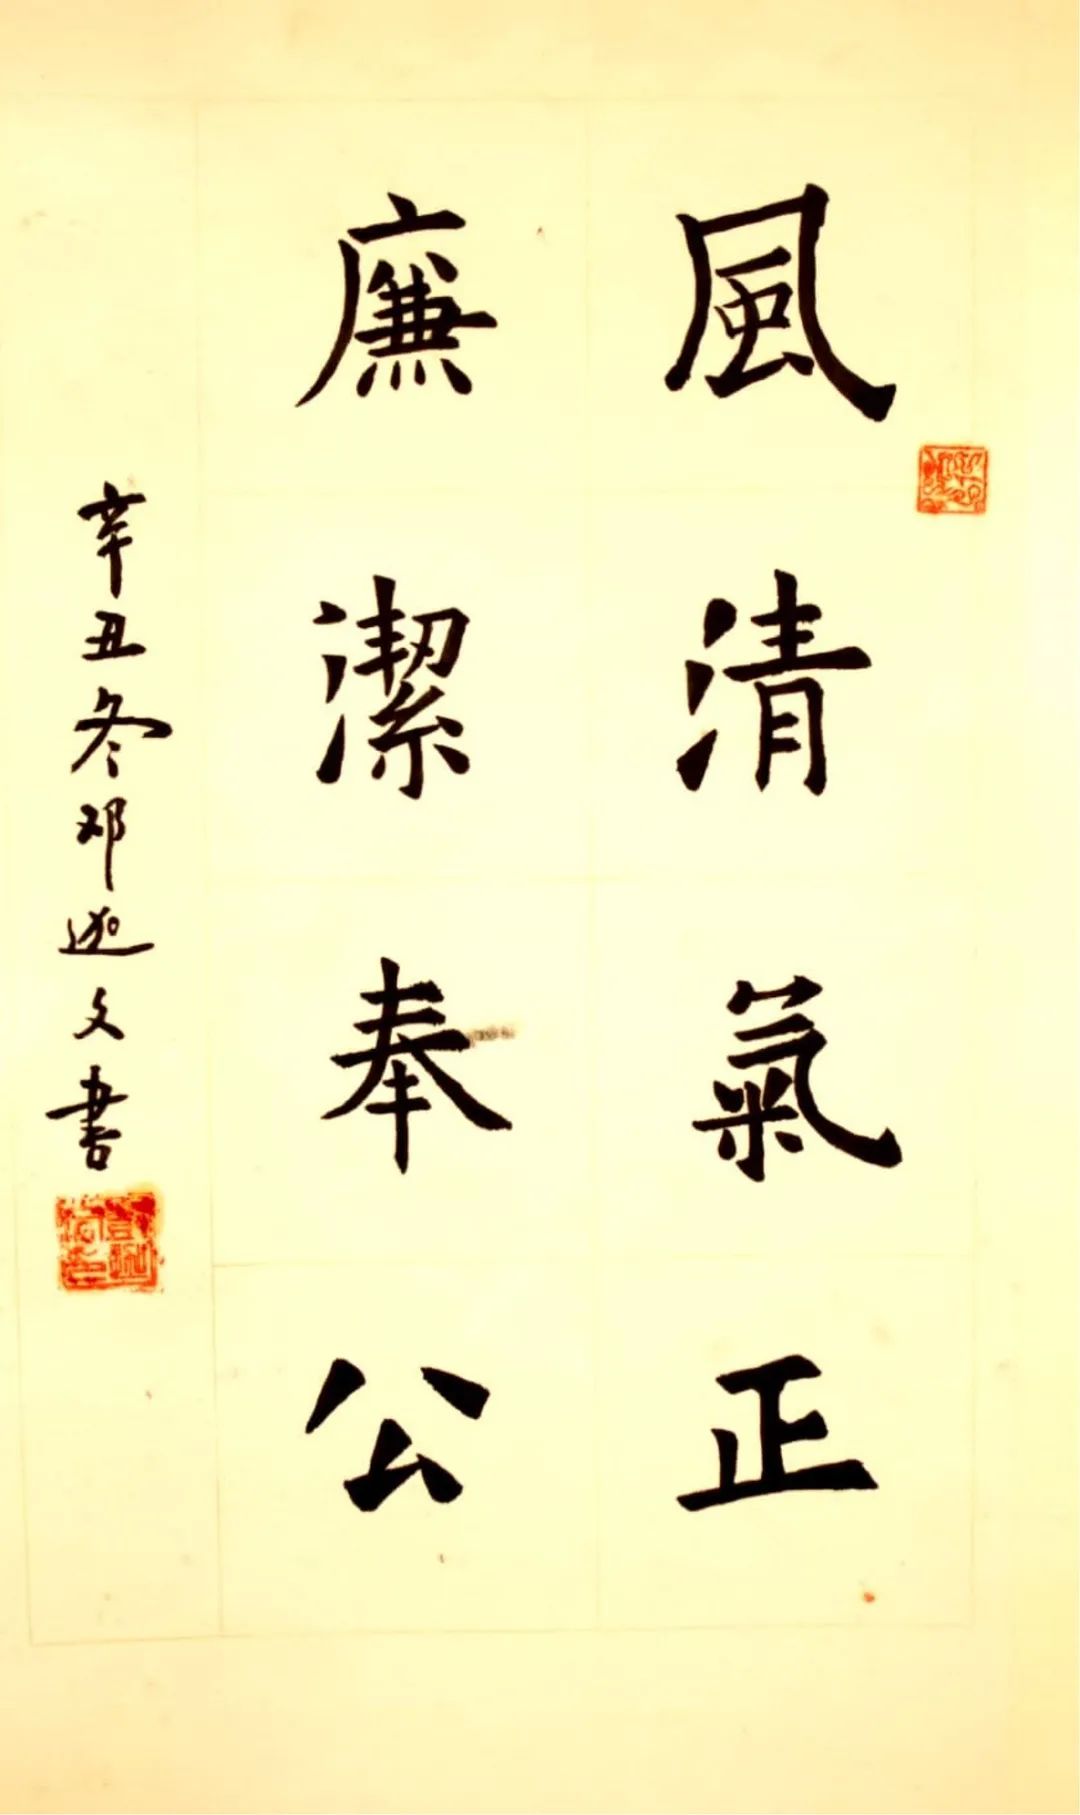 風清氣正
廉潔奉公
辛丑冬邓迦文書